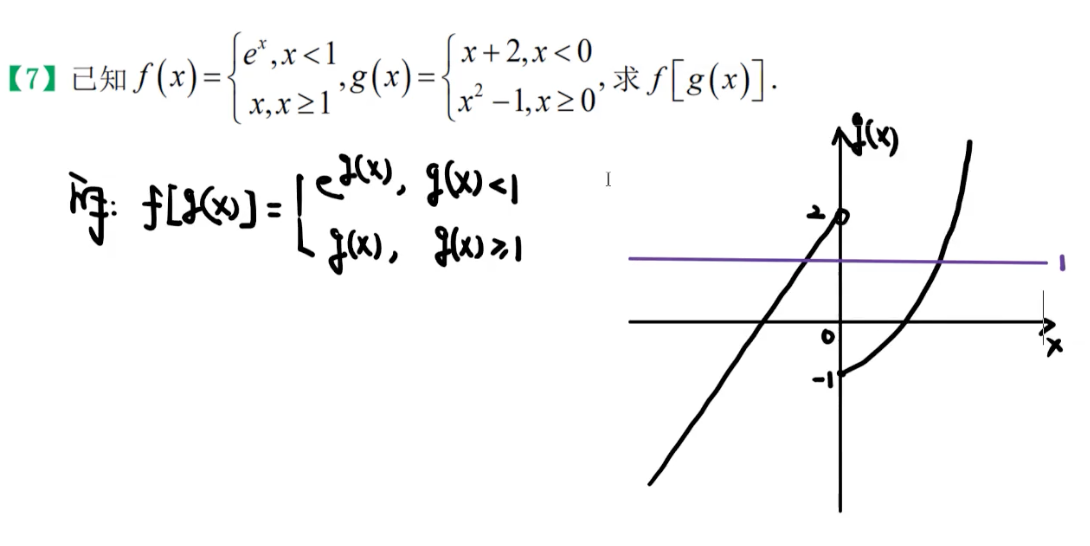 【7】已知 f(x)={e^x, x<1
x, x≥1 , g(x)={x+2, x<0
x²-1, x≥0 , 求 f[g(x)].
解: f[g(x)]={e^{g(x)}, g(x)<1
g(x), g(x)≥1
g(x)
2
1
0
x
-1